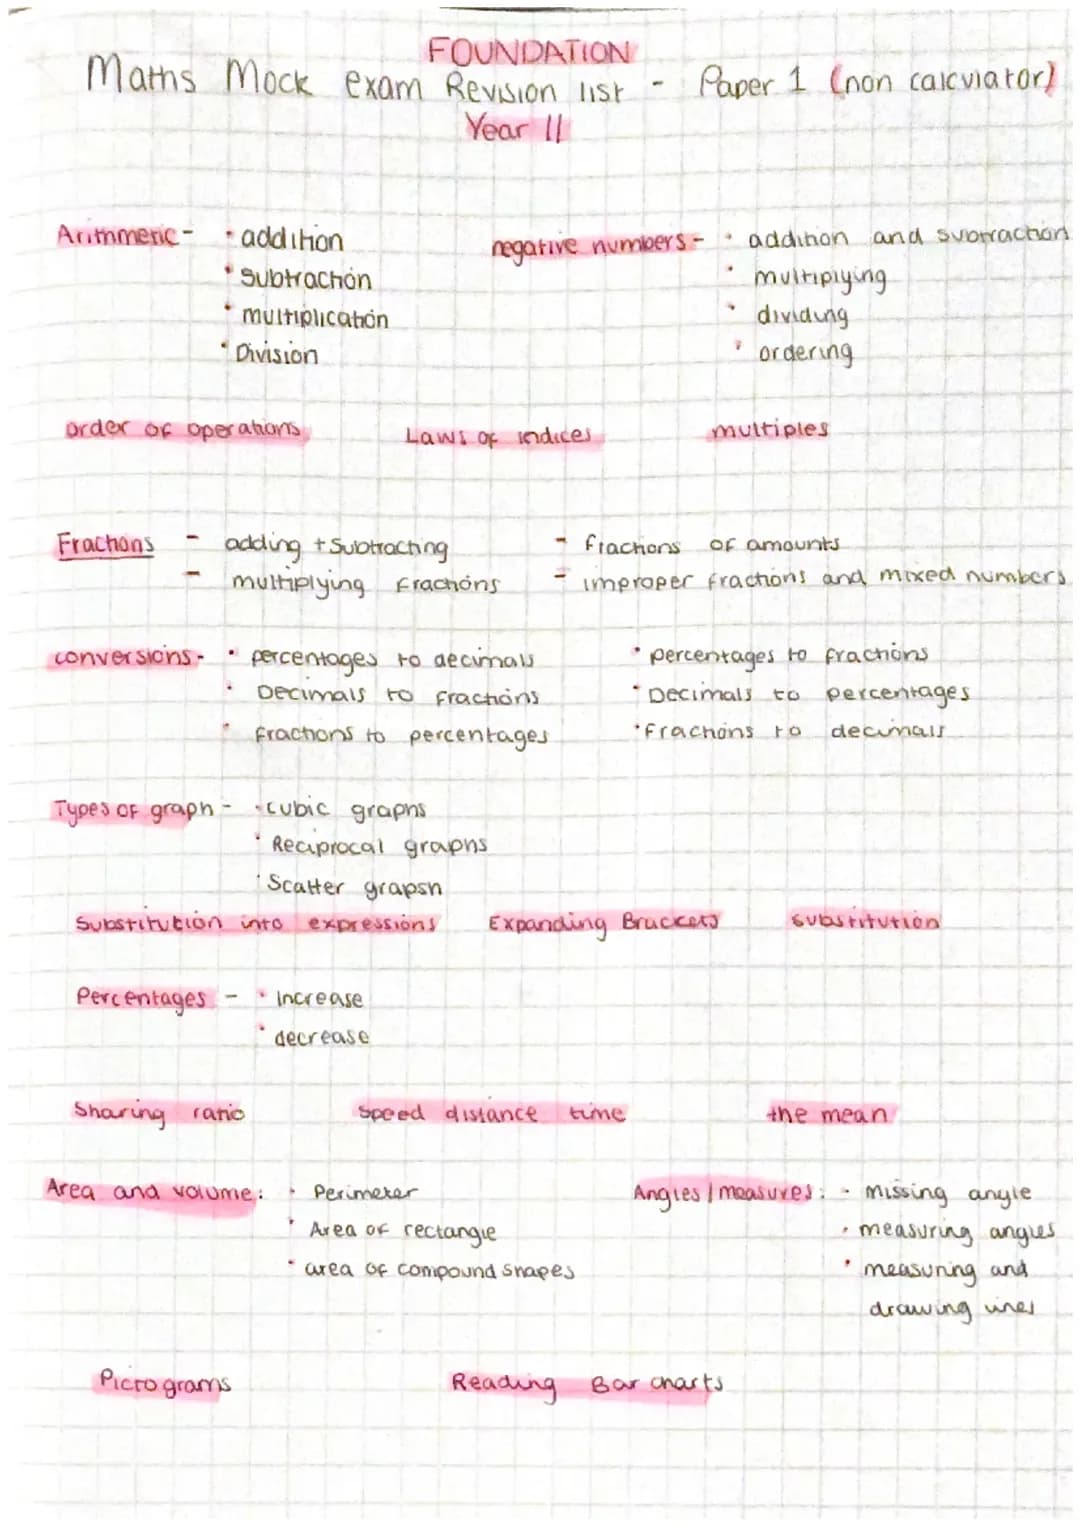 FOUNDATION
Maths Mock exam Revision list - Paper 1 (non calculator)
Year 11
Arithmetic - • addition
• Subtraction
• multiplication
• Division
negative numbers - • addition and subtraction
• multiplying
• dividing
• ordering
order of operations Laws of indices multiples
Fractions - adding + Subtracting
- multiplying fractions
- fractions of amounts
- improper fractions and mixed numbers
conversions - • percentages to decimals
• Decimals to fractions
• fractions to percentages
• percentages to fractions
• Decimals to percentages
• Fractions to decimals
Types of graph - • cubic graphs
• Reciprocal graphs
• Scatter grapsh
Substitution into expressions Expanding Brackets substitution
Percentages - • increase
• decrease
Sharing ratio Speed distance time the mean
Area and volume: • Perimeter
• Area of rectangle
• area of compound shapes
Angles / measures: • missing angle
• measuring angles
• measuring and
drawing lines
Pictograms Reading Bar charts